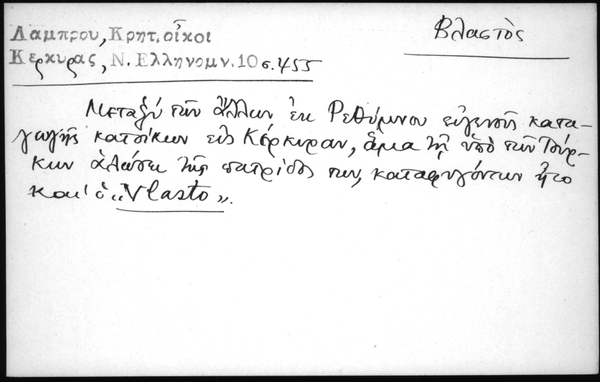 Λαμπρου, Κρητ. οἶκοι
Κερκυρας, Ν. Ελληνομν. 10 σ. 455
Βλαστὸς
Μεταξὺ τῶν ἄλλων ἐκ Ρεθύμνου εὐγενοῦς κατα-
γωγῆς κατοίκων εἰς Κέρκυραν, ἅμα τῇ ὑπὸ τῶν Τούρ-
κων ἁλώσει τῆς πατρίδος των, καταφυγόντων ἦτο
και' ὁ "Vlasto".